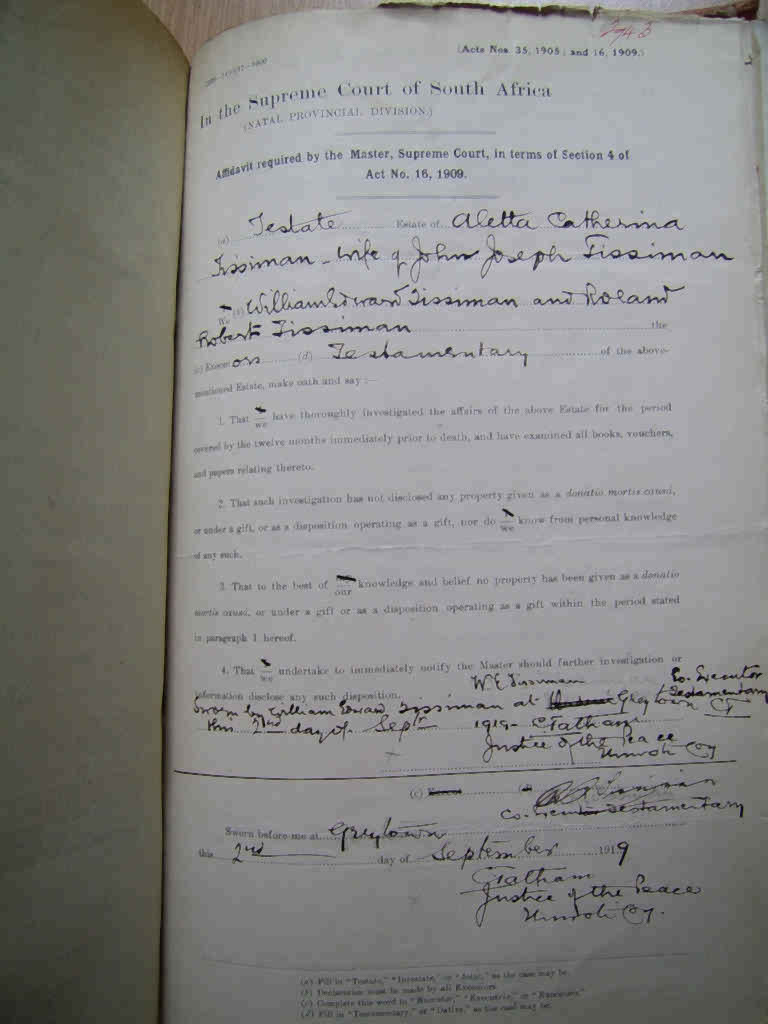 2743
(Acts Nos. 35, 1905; and 16, 1909.)
In the Supreme Court of South Africa
(NATAL PROVINCIAL DIVISION.)
Affidavit required by the Master, Supreme Court, in terms of Section 4 of
Act No. 16, 1909.
(a) Testate Estate of Aletta Catherina
Tissiman - wife of John Joseph Tissiman
We (b) William Edward Tissiman and Roland
Robert Tissiman the
(c) Executors (d) Testamentary of the above-
mentioned Estate, make oath and say :—
1. That we have thoroughly investigated the affairs of the above Estate for the period
covered by the twelve months immediately prior to death, and have examined all books, vouchers,
and papers relating thereto.
2. That such investigation has not disclosed any property given as a donatio mortis causi,
or under a gift, or as a disposition operating as a gift, nor do we know from personal knowledge
of any such.
3. That to the best of our knowledge and belief no property has been given as a donatio
mortis causi, or under a gift or as a disposition operating as a gift within the period stated
in paragraph 1 hereof.
4. That we undertake to immediately notify the Master should further investigation or
information disclose any such disposition.
W. E. Tissiman Co-Executor
Testamentary
Sworn by William Edward Tissiman at Greytown CT
this 2nd day of Sept 1919- CTatham
Justice of the Peace
Umvoti Coy
(c) (d) R R Tissiman
Co-Executor Testamentary
Sworn before me at Greytown
this 2nd day of September 1919
CTatham
Justice of the Peace
Umvoti Coy.
(a) Fill in "Testate," "Intestate," or "Joint," as the case may be.
(b) Declaration must be made by all Executors.
(c) Complete this word in "Executor," "Executrix," or "Executors."
(d) Fill in "Testamentary," or "Dative," as the case may be.